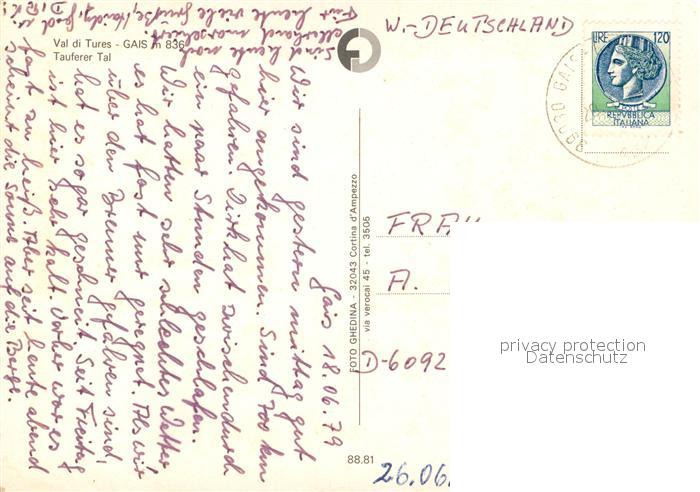 Val di Tures - GAIS m 836
Tauferer Tal
Gais 18.06.79
Wir sind gestern mittag gut
hier angekommen. Sind 700 km
gefahren. Dirk hat zwischendurch
ein paar Stunden geschlafen.
Wir hatten sehr schlechtes Wetter
es hat fast nur geregnet. Als wir
über den Brenner gefahren sind,
hat es sogar geschneit. Seit Freitag
ist hier sehr kalt. Vorher war es
fast zu heiß. Aber seit heute abend
scheint die Sonne auf die Berge.
Sind heute noch
marschiert
Für heute viele Grüße,
FOTO GHEDINA - 32043 Cortina d'Ampezzo
via verocai 45 - tel. 3505
88.81
W.-DEUTSCHLAND
LIRE 120
POSTE
REPVBBLICA
ITALIANA
39030 GAIS
FRAU
A.
D-6092
26.06.
privacy protection
Datenschutz